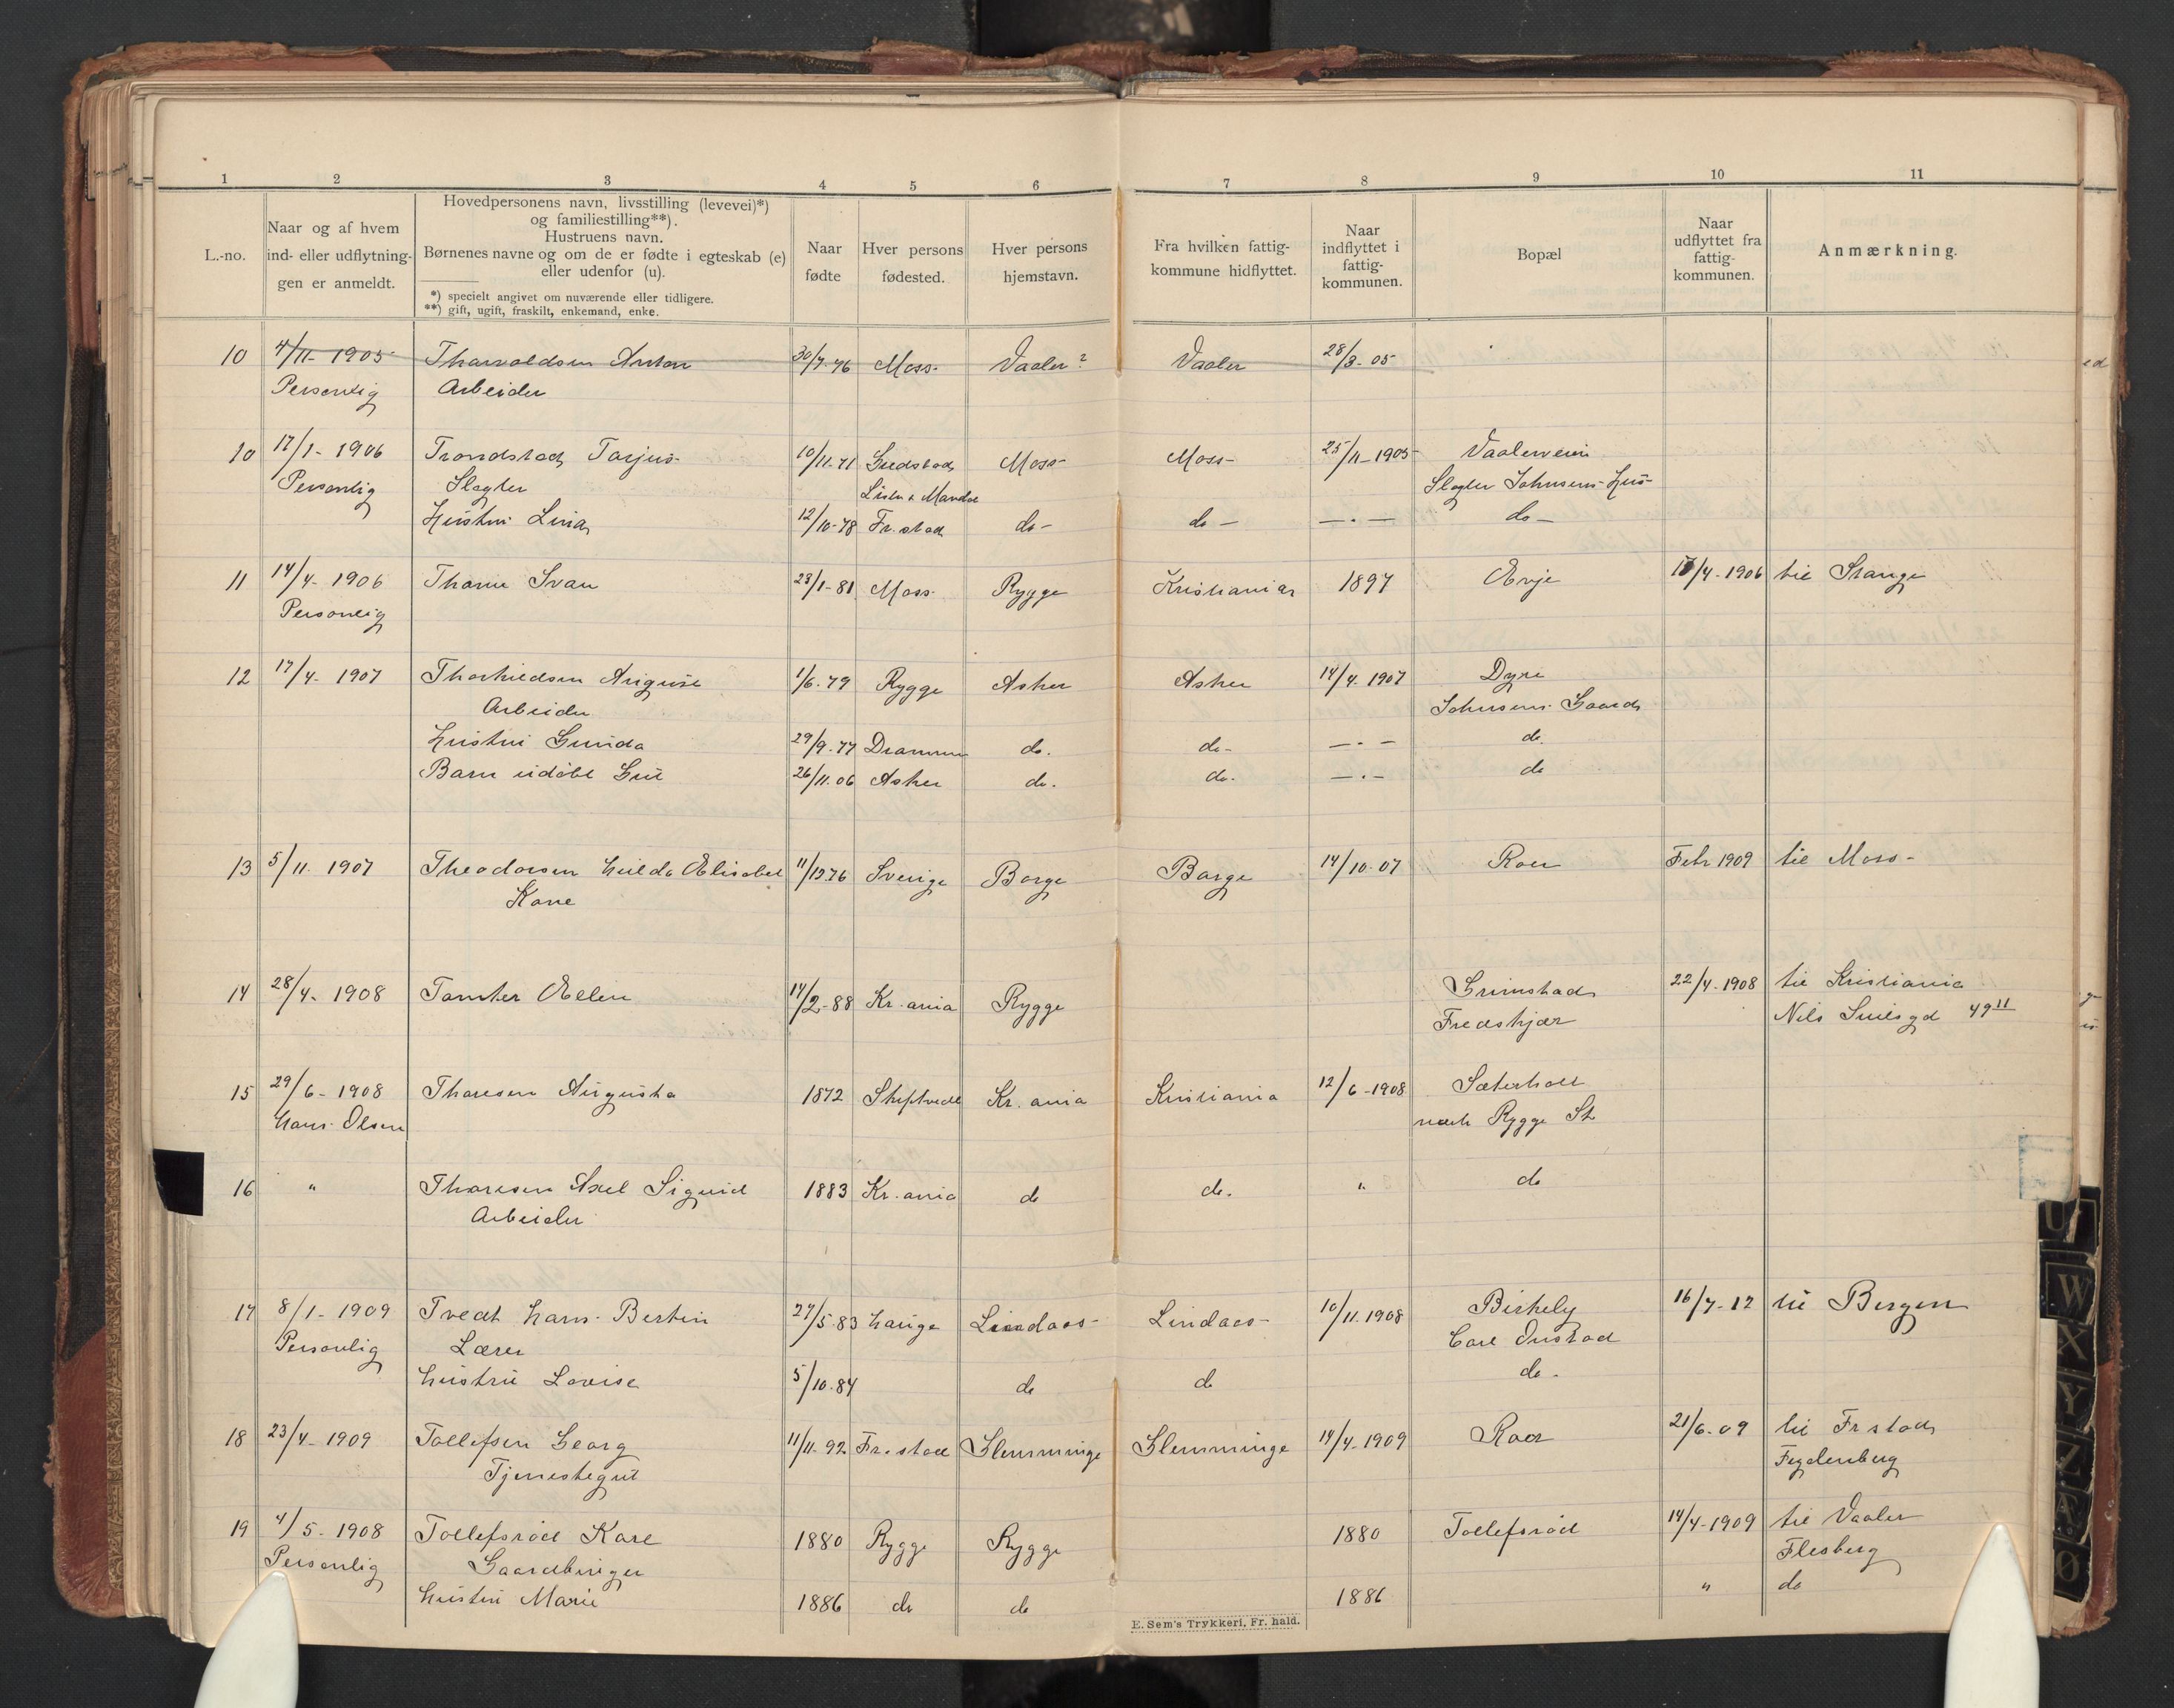 1 2 3 4 5 6 7 8 9 10 11
L.-no.
Naar og af hvem
ind- eller udflytnin-
gen er anmeldt.
Hovedpersonens navn, livsstilling (levevei)*)
og familiestilling**).
Hustruens navn.
Børnenes navne og om de er fødte i egteskab (e)
eller udenfor (u).
*) specielt angivet om nuværende eller tidligere.
**) gift, ugift, fraskilt, enkemand, enke.
Naar
fødte
Hver persons
fødested.
Hver persons
hjemstavn.
Fra hvilken fattig-
kommune hidflyttet.
Naar
indflyttet i
fattig-
kommunen.
Bopæl
Naar
udflyttet fra
fattig-
kommunen.
Anmærkning.
10 4/11- 1905 Tharvaldsen Anton 30/7-76 Moss- Vaaler? Vaaler 28/3-05
Personlig Arbeider
10 17/1- 1906 Trondstad Tarjus- 10/11-71 Moss- Moss- 25/11-1905 Vaalerveien
Personlig Slagter Lister & Mandal Slagter Johnsens Hus-
Hustru Lina 12/10-78 Fr. stad do- do- —·— do-
11 14/4- 1906 Thorne Ivar 23/1-81 Moss- Rygge Kristiania 1897 Evje /4-1906 til Stange
Personlig
12 17/4- 1907 August 1/6-79 Rygge Asker Asker 14/4-1907 Dyre
Arbeider Johnsens Gaard
Hustru Gunda 29/9-77 Drammen do. do- —·— do.
Barn udøbt Gut 26/11.06 Asker do. do. —·— do
13 5/11. 1907 Theodorsen Hulda Elisabet 11/12-76 Sverige Borge Borge 14/10-07 Roer Febr 1909 til Moss-
Kone
14 28/4- 1908 Tomter Ellen 14/2-88 Kr. ania Rygge Grimstad 22/4-1908 til Kristiania
Fredskjær Nils Juelsgd 49 II
15 29/6- 1908 Thoresen Augusta 1872 Skiptvedt Kr. ania Kristiania 12/6-1908 Sæterholt
Hans Olsen Rygge St
16 " Thoresen Axel Sigurd 1883 Kr. ania do do. " do
Arbeider
17 8/1- 1909 Tvedt Hans Bertin 27/5-83 Hauge Lindaas- Lindaas- 10/11.1908 Birkely 16/7-12 til Bergen
Personlig Lærer Carl Onstad
Hustru Lovise 5/10-84 do do do.
18 23/4- 1909 Tollefsen Georg 11/11-92 Fr. stad Glemminge Glemminge 14/4-1909 Roer 21/6-09 til Fr stad
Tjenestegut
19 4/5- 1908 Tollefsrød Karl 1880 Rygge Rygge 1880 Tollefsrød 14/4-1909 til Vaaler
Personlig Gaardbruger Flesberg
Hustru Marie 1886 do do 1886 " do
E. Sem's Trykkeri, Fr. hald.
U
W
X
Y
Z
Æ
Ø